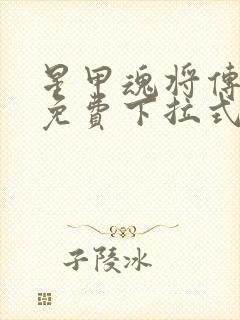 星甲魂将傳
免費下拉式
子陵冰